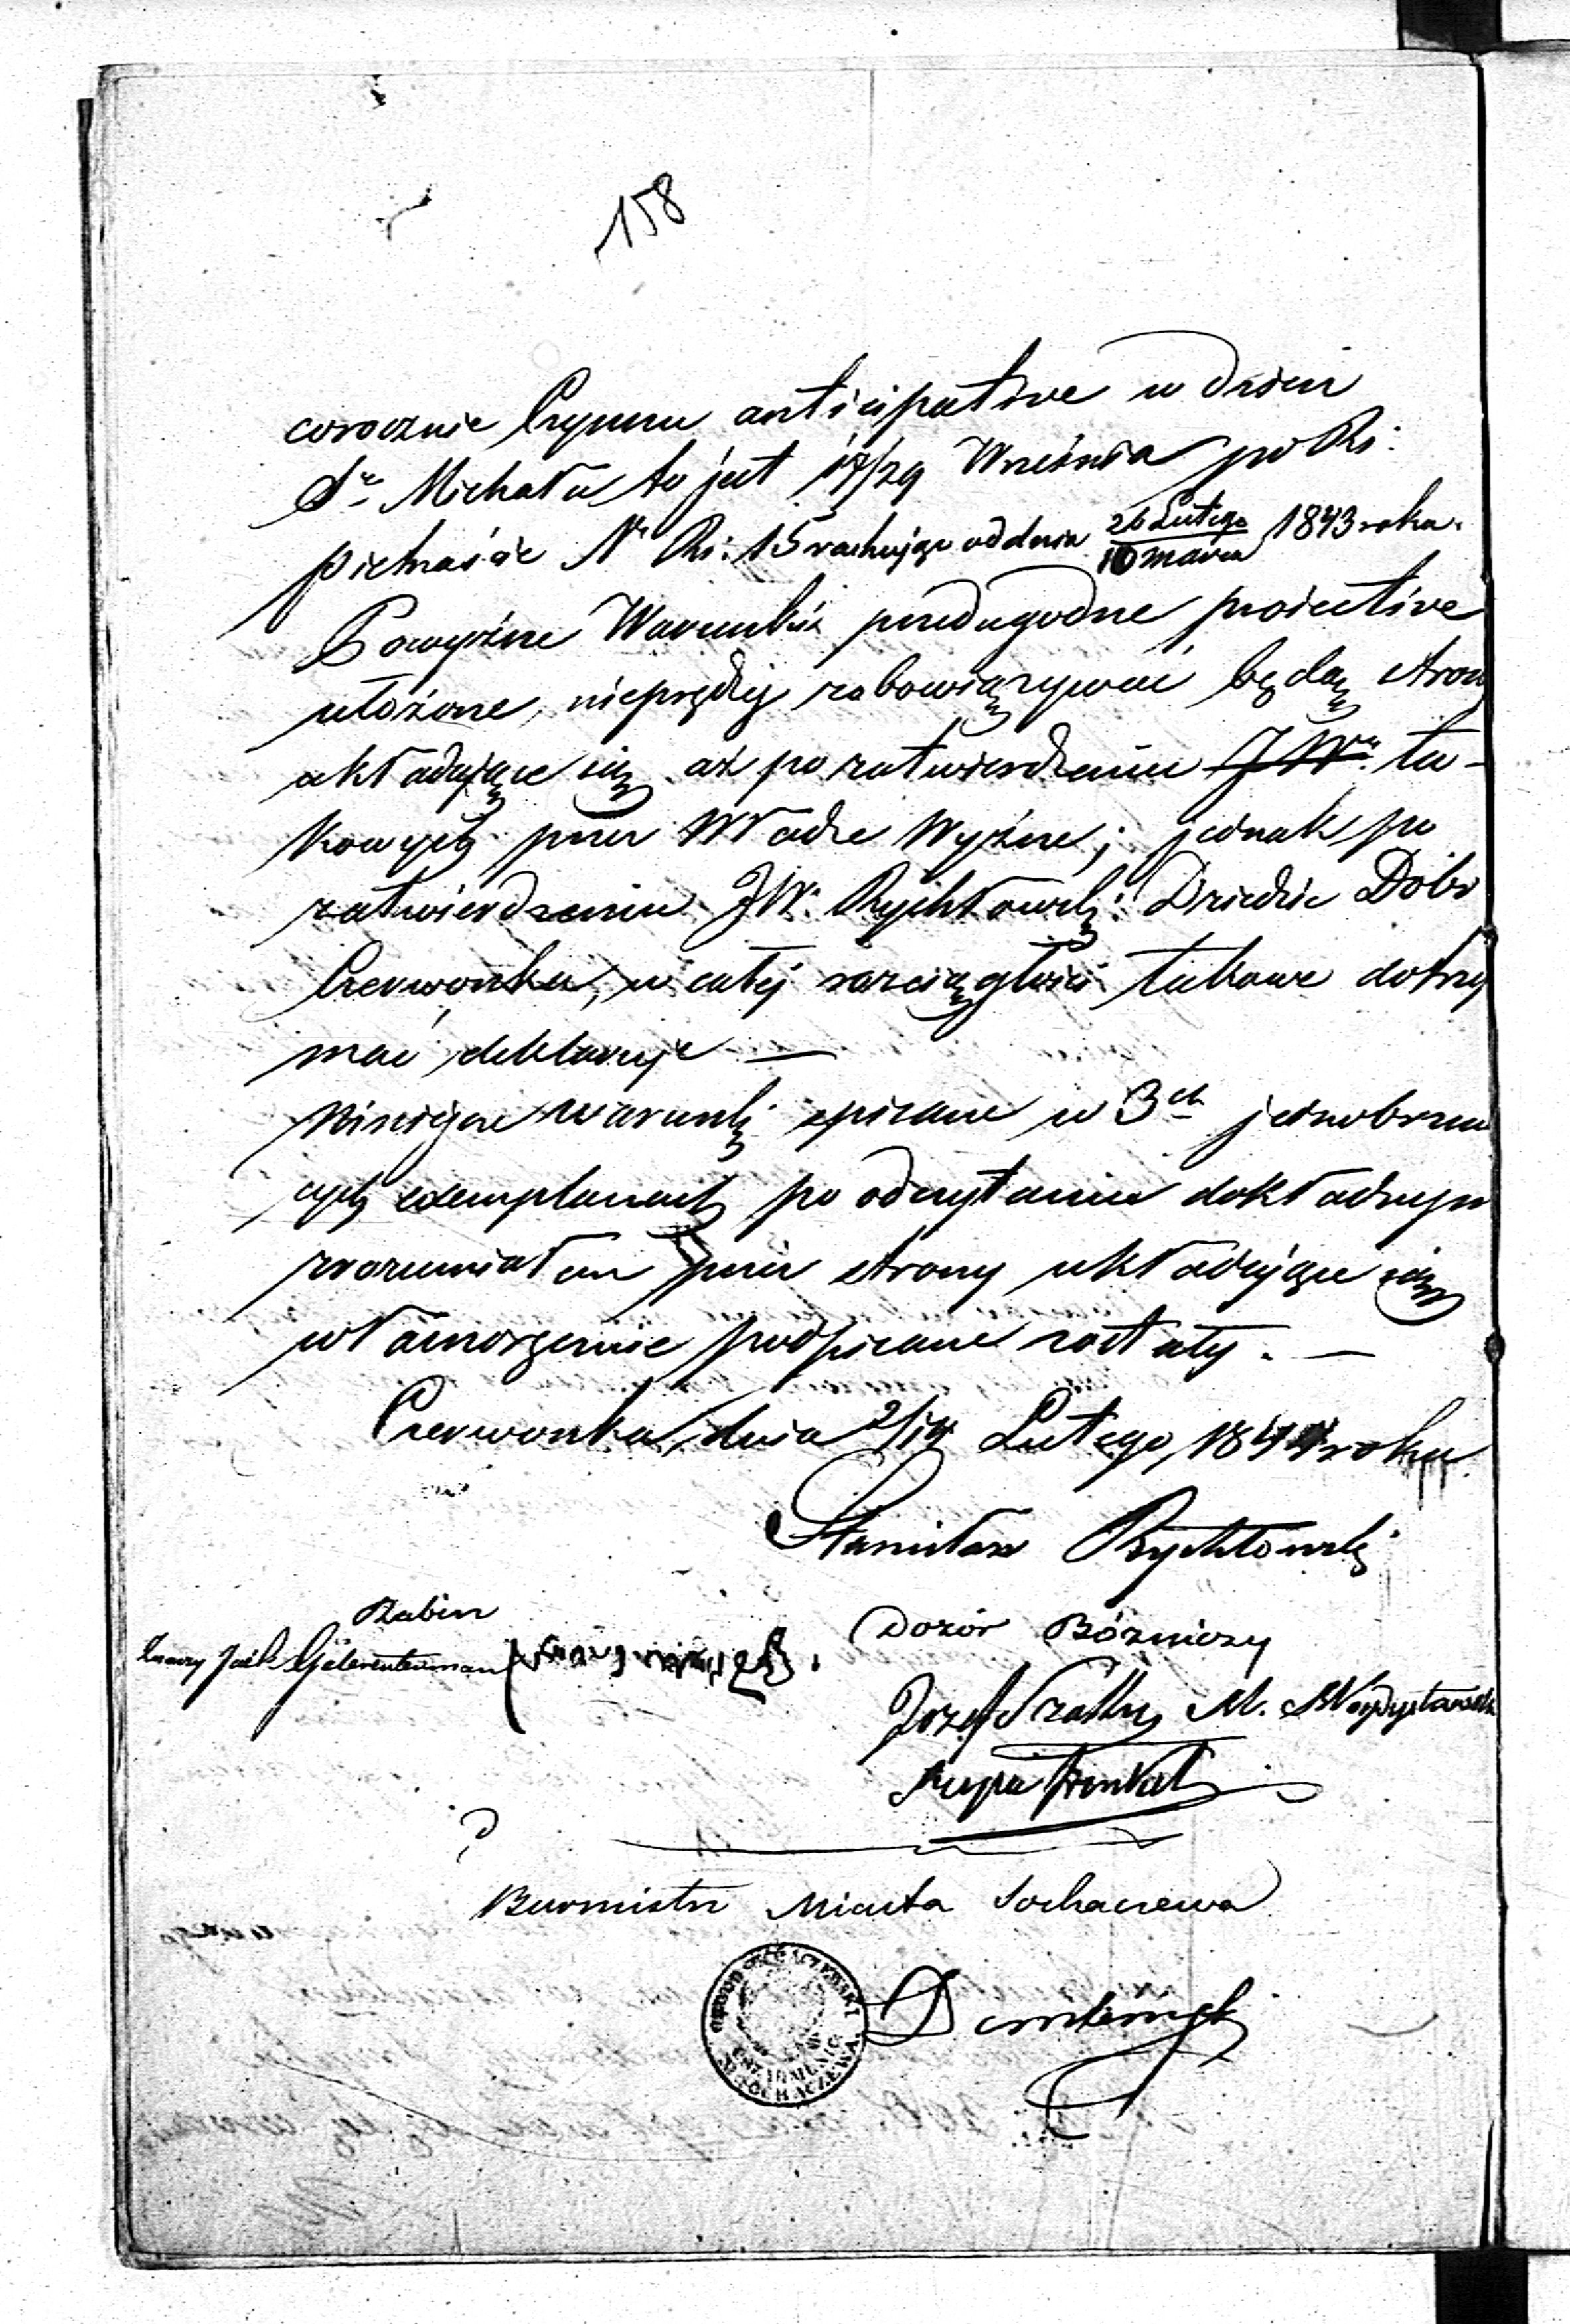 158
corocznie Czynszu anticipative w dzień
Sgo Michała to jest 17/29 Września po Rs:
piętnaście Nr Rs: 15 rachując od dnia 26 Lutego/10 Marca 1843 roku.
Powyższe Warunki przedugodne proiective
ułożone, nieprędzej zobowiązywać będą stron
układające się aż po zatwierdzeniu JWgo ta-
kowych przez Władze Wyższe; jednak po
zatwierdzeniu JW: Rychłowski Dziedzic Dóbr
Czerwonka, w całej rozciągłości takowe dotrzy
mać deklaruje —
Niniejsze warunki spisane w 3ch jednobrzmi
cych exemplarzach po odczytaniu dokładnym
zrozumiałem przez strony układające się
własnoręcznie podpisane zostały. —
Czerwonka, dnia 2/14 Lutego, 1844 roku
Stanisław Rychłowski
Rabin
Dozór Bózniczy
Józef M.
Burmistrz Miasta Sochaczewa
SOCHACZEWA